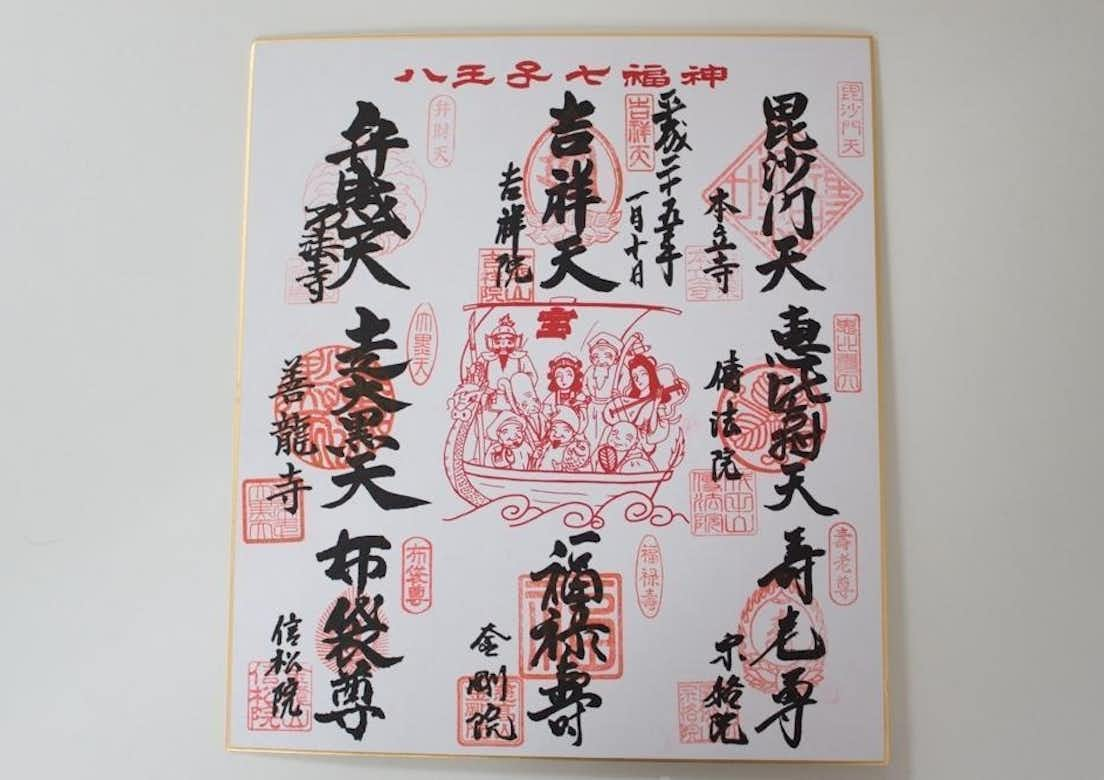 八王子七福神
毘沙門天
毘沙門天
本立寺
平成二十五年
一月十日
吉祥天
吉祥天
吉祥院
吉祥院
弁財天
弁財天
恵比寿天
傳法院
傳法院
宝
大黒天
走大黒天
善龍寺
壽老尊
寿老尊
宗格院
福禄壽
福禄壽
金剛院
布袋尊
布袋尊
信松院